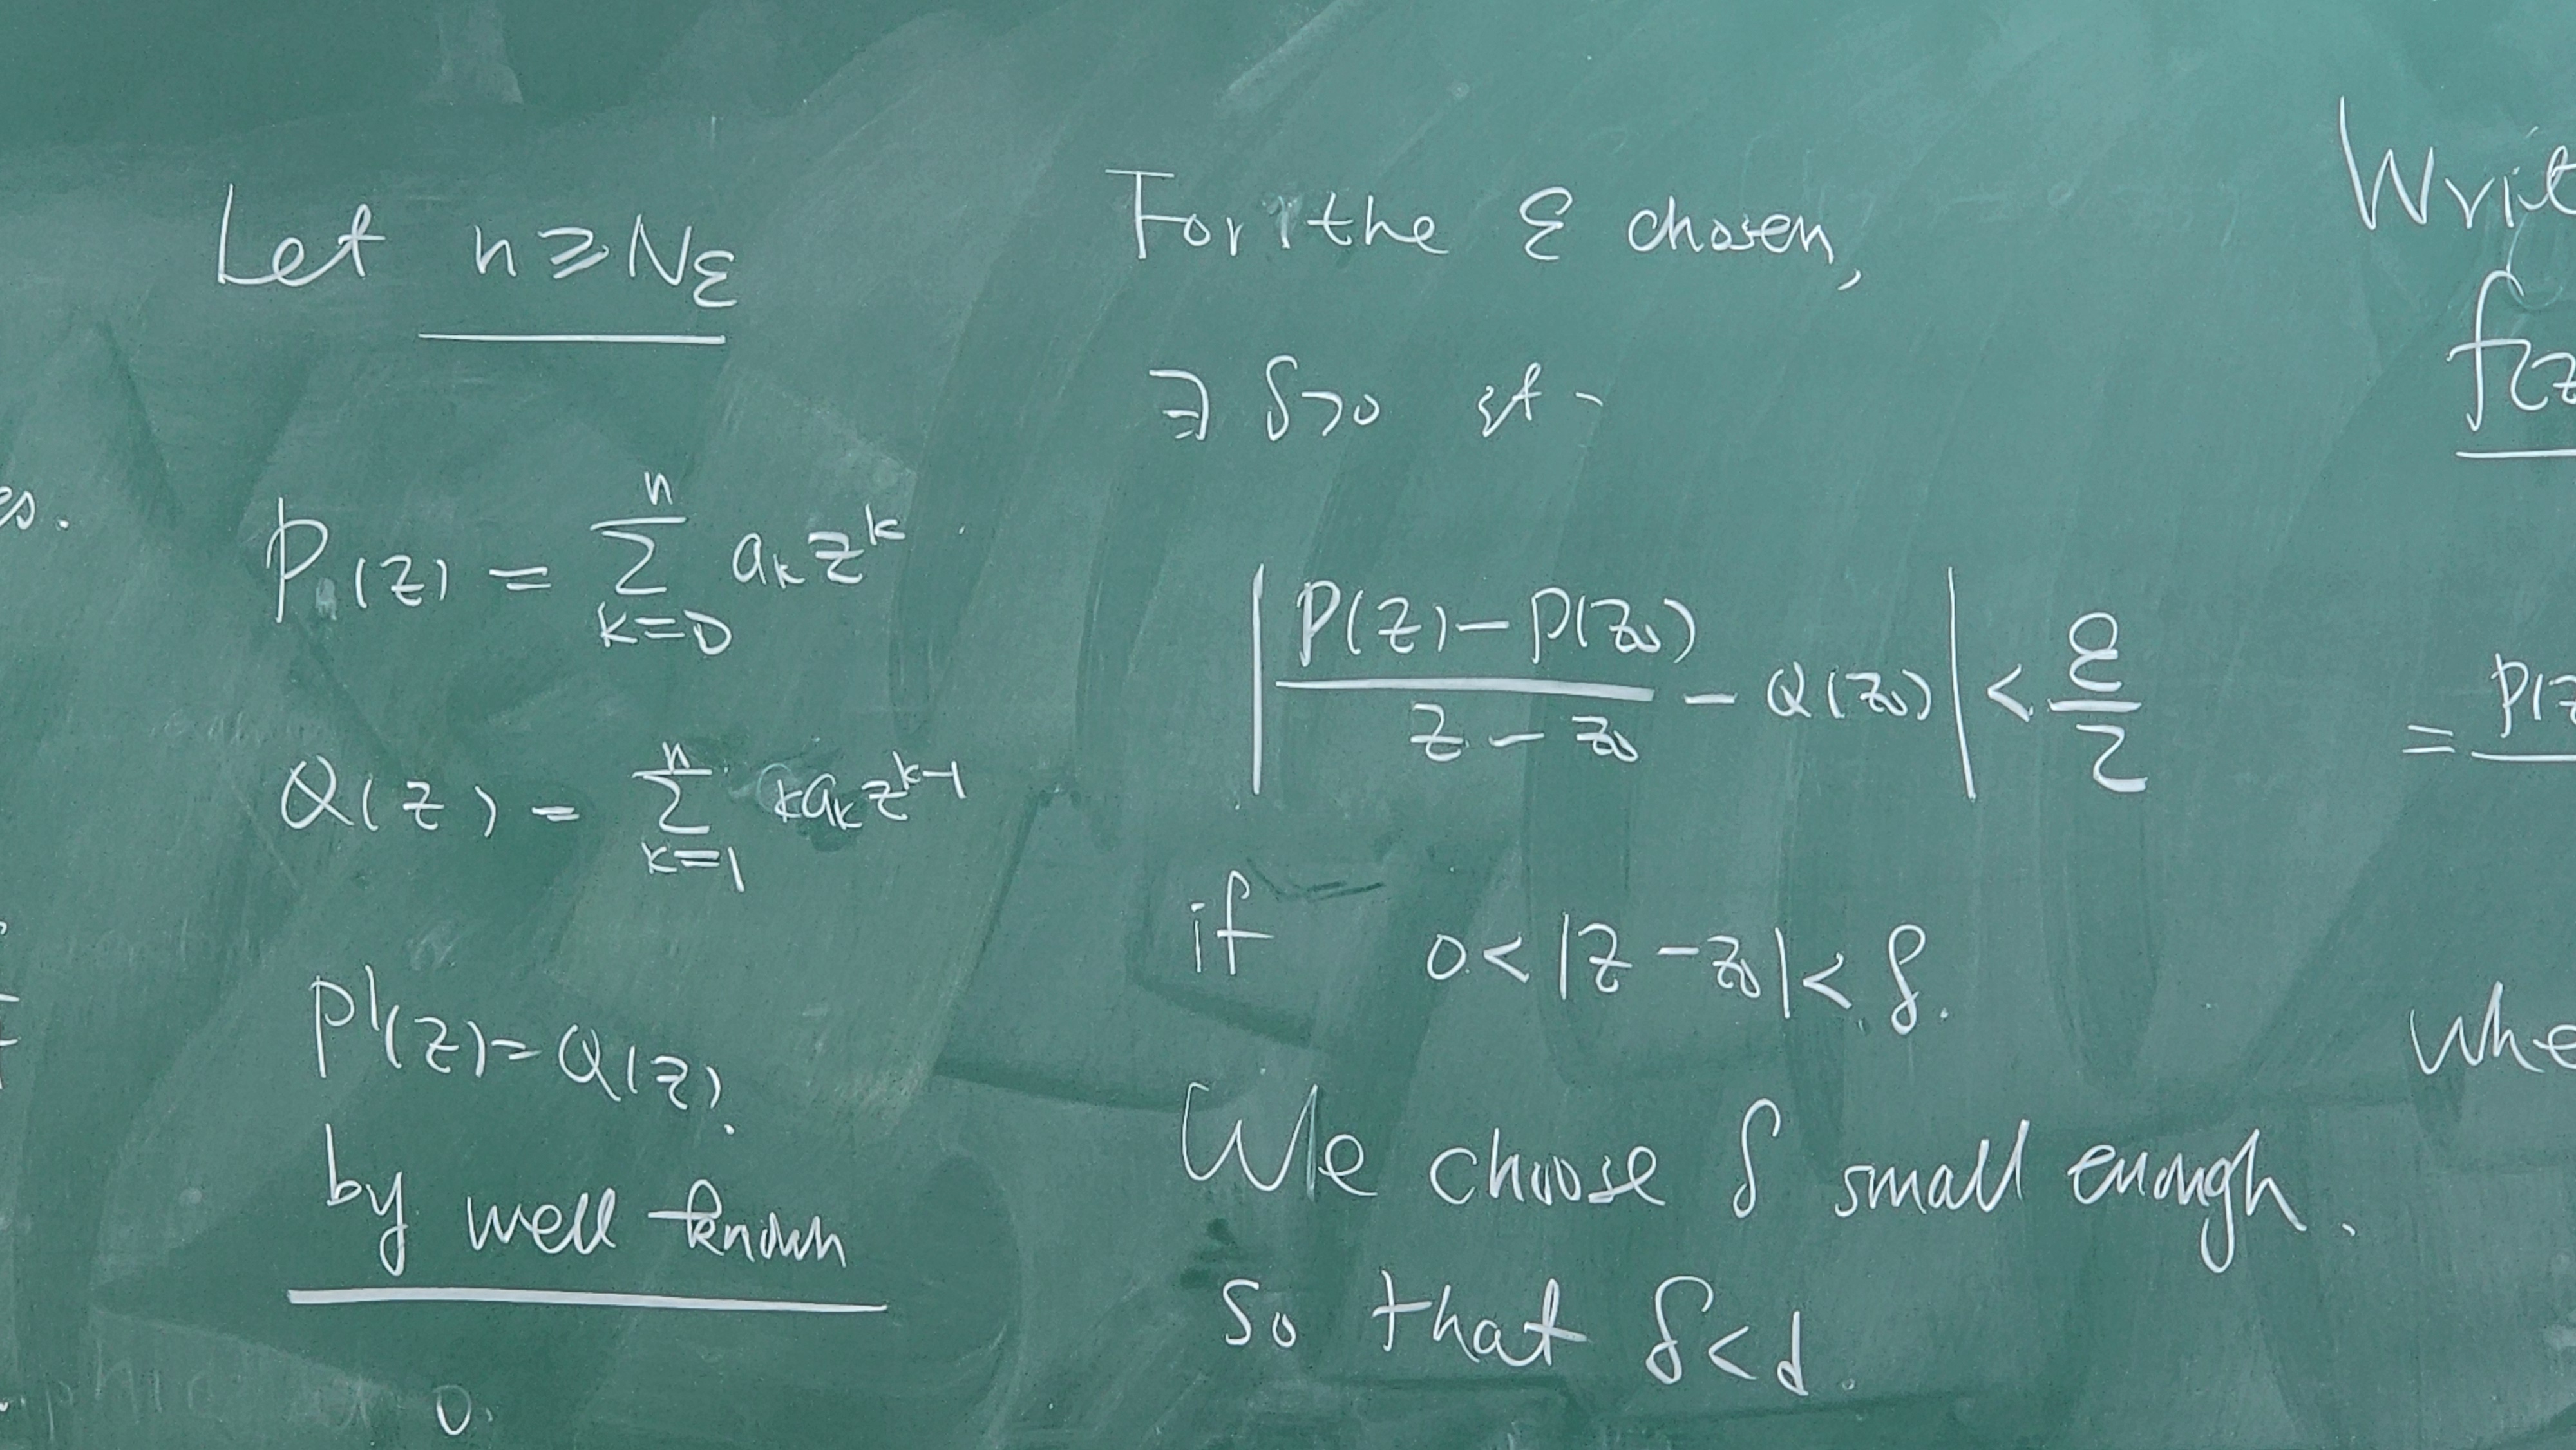 Let n ≥ Nε
P(z) = ∑_{k=0}^{n} a_k z^k
Q(z) = ∑_{k=1}^{n} k a_k z^{k-1}
P'(z) = Q(z).
by well known
For the ε chosen,
∃ δ>0 st.
| (P(z) - P(z₀))/(z - z₀) - Q(z₀) | < ε/2
if 0 < |z - z₀| < δ.
We choose δ small enough.
so that δ < d.
f(z
= P(z